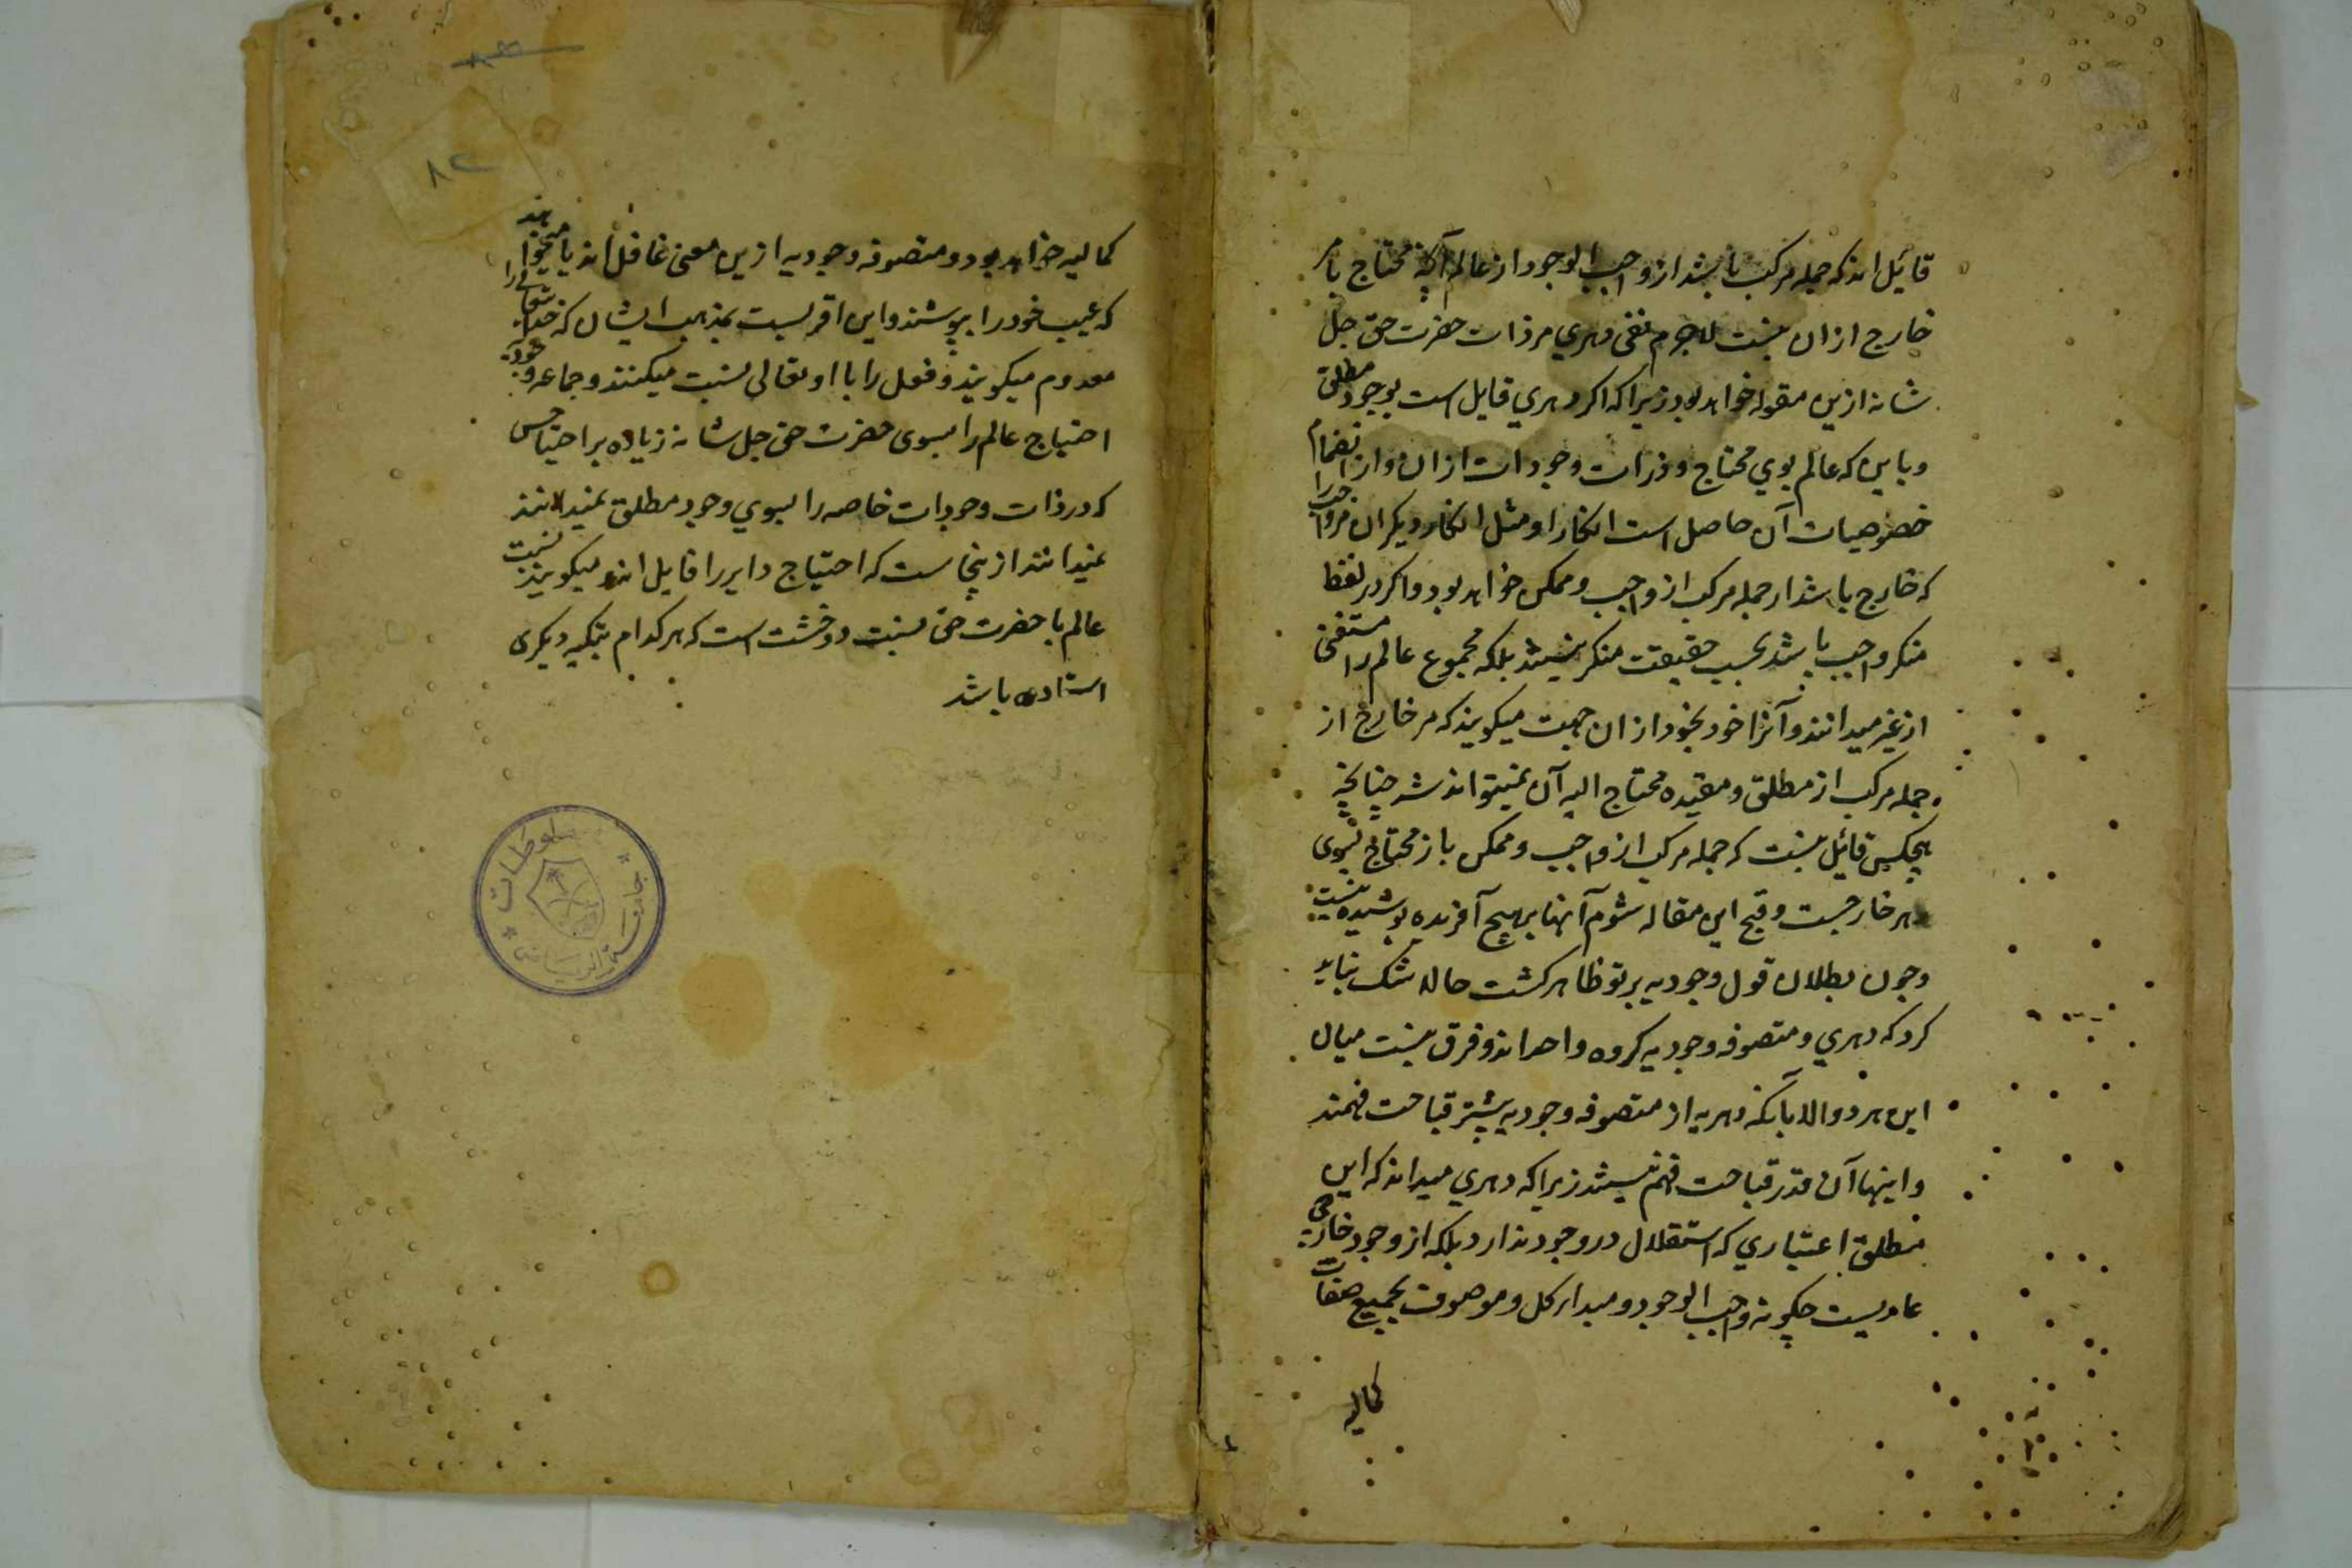 قائیل اند که جمله مرکب باشد از واجب الوجود از عالم آنکه محتاج بامر
خارج ازان نیست لاجرم نفی دهری مر ذات حضرت حق جل
شانه ازین مقوله خواهد بود زیرا که اگر دهری قایل است بوجود مطلق
و باین که عالم بوی محتاج و ذرات وجودات ازان و از انضمام
خصوصیات آن حاصل است انکار او مثل انکار دیگران مر واجب را
که خارج باشد از جمله مرکب از واجب و ممکن خواهد بود و اگر در لفظ
منکر واجب باشد بحسب حقیقت منکر نیستند بلکه مجموع عالم را مستغنی
از غیر میدانند و آنرا خود بخود ازان جهت میکویند که مر خارج از
جمله مرکب از مطلق و مقیده محتاج الیه آن نمیتواند شد چنانچه
هیچکس قائیل نیست که جمله مرکب از واجب و ممکن باز محتاج بسوی
هر خارجست و قبح این مقاله شوم آنها بر هیچ آفریده پوشیده نیست
و چون بطلان قول وجودیه بر تو ظاهر کشت حالا شک نباید
کرد که دهری و متصوفه وجودیه کروه واحد اند و فرق نیست میان
این هر دو الا بآنکه دهریه از متصوفه وجودیه بیشتر قباحت فهمند
و اینها آن قدر قباحت فهم نیستند زیرا که دهری میداند که این
مطلق اعتباری که استقلال در وجود ندارد بلکه از وجود خارجی
عاریست چکونه واجب الوجود و مبدا کل و موصوف بجمیع صفات
کمالیه
۸۲
کمالیه خواهد بود و متصوفه وجودیه ازین معنی غافل اند یا میخواهند
که عیب خود را بپوشند و این اقربست بمذهب ایشان که خدا تعالی را
معدوم میکویند و فعل را با او تعالی نسبت میکنند و جماعه وجودیه
احتیاج عالم را بسوی حضرت حق جل شانه زیاده بر احتیاجی
که در ذات وجودات خاصه را بسوی وجود مطلق نمیدانند
نمیدانند از ینجاست که احتیاج دایر را قایل اند میکویند نسبت
عالم با حضرت حق نسبت دو خشت است که هر کدام بتکیه دیکری
استاده باشد
مخطوطات
جامعة الرياض